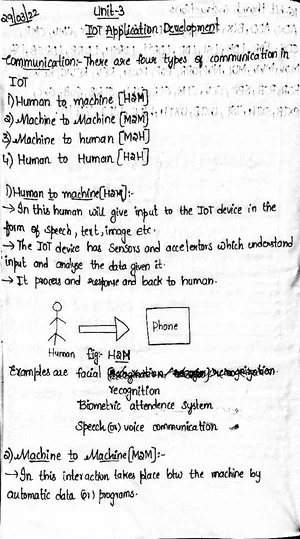 29/03/22
Unit-3
IOT Application Development
Communication:- There are four types of communication in
IOT
1) Human to machine [H2M]
2) Machine to Machine [M2M]
3) Machine to human [M2H]
4) Human to Human [H2H]
1) Human to machine [H2M]:-
→ In this human will give input to the IOT device in the
form of speech, text, image etc.
→ The IOT device has sensors and
input and analyse the data given it.
→ It process and response and back to human.
Phone
Human fig:- H2M
Examples are facial
recognition
Biometric attendence system
Speech (or) voice communication
2) Machine to Machine [M2M]:-
→ In this interaction takes place btw the machine by
automatic data (or) programs.